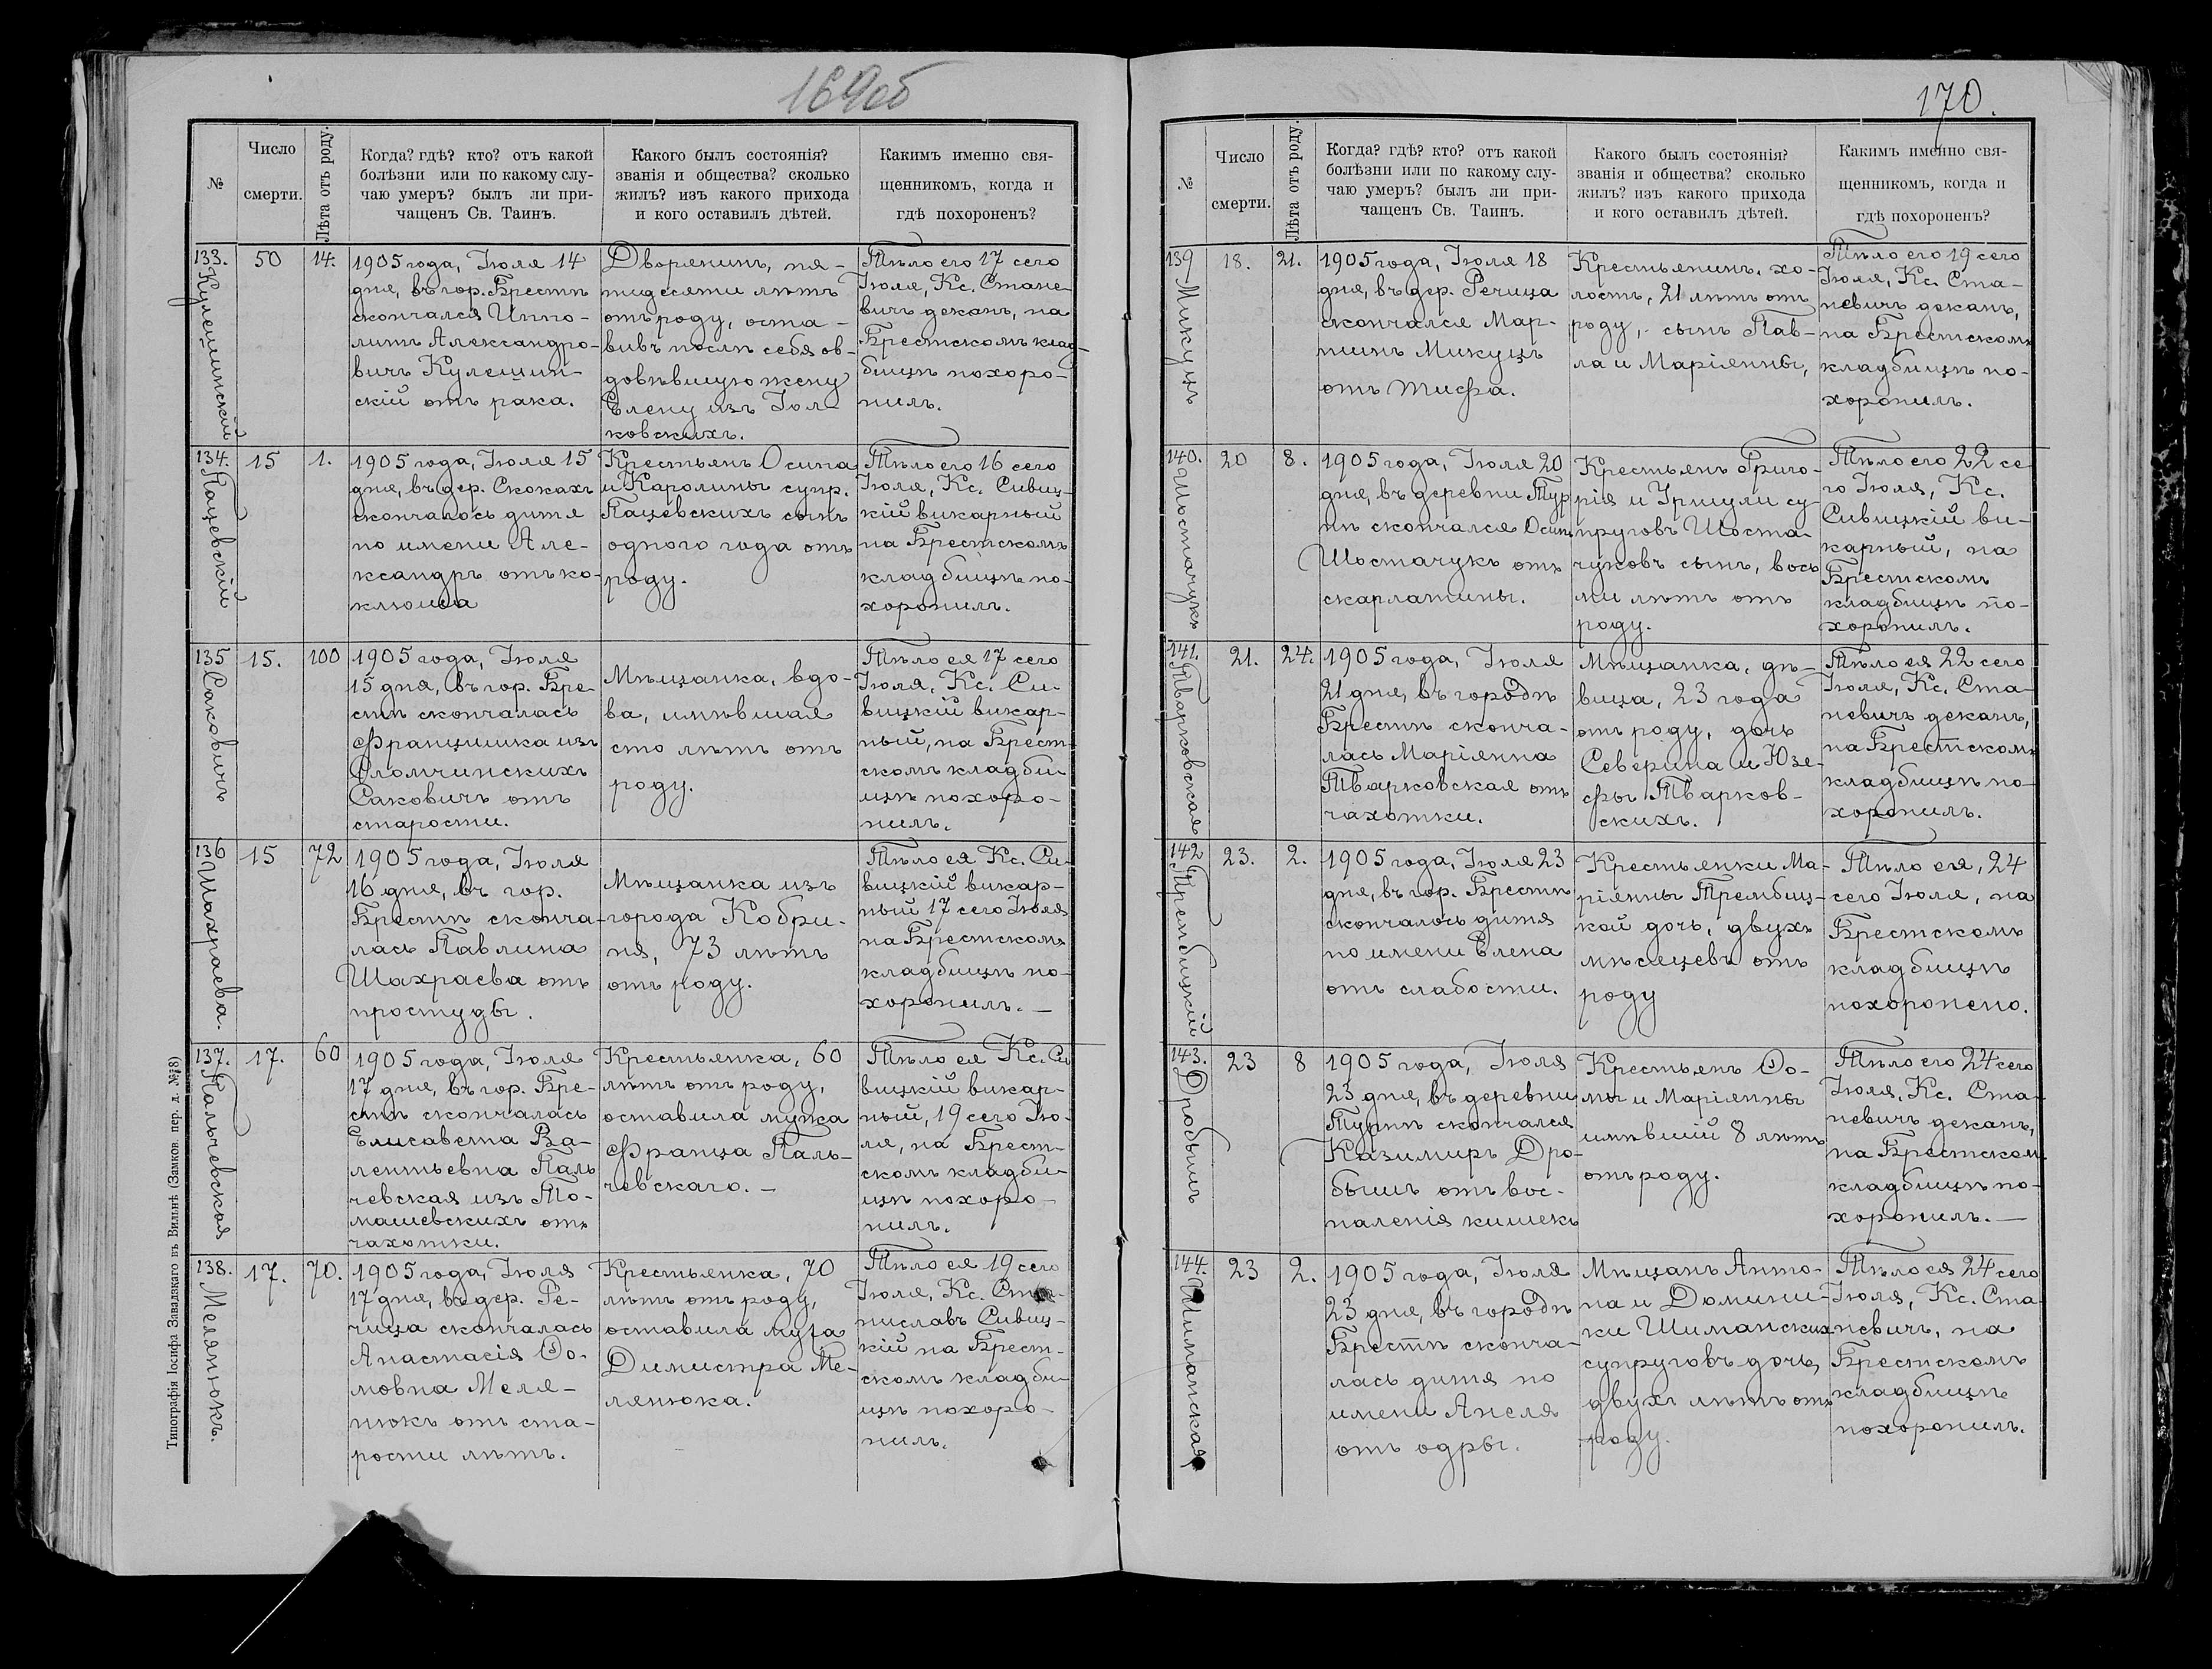 169об
№
Число
смерти.
Лѣта отъ роду.
Когда? гдѣ? кто? отъ какой
болѣзни или по какому слу-
чаю умеръ? былъ ли при-
чащенъ Св. Таинъ.
Какого былъ состоянія?
званія и общества? сколько
жилъ? изъ какого прихода
и кого оставилъ дѣтей.
Какимъ именно свя-
щенникомъ, когда и
гдѣ похороненъ?
133.
Кулешинскій
50
14.
1905 года, Іюля 14
дня, въ гор. Брестѣ
скончался Иппо-
литъ Александро-
вичъ Кулешин-
скій отъ рака.
Дворянинъ, пя-
тидесяти лѣтъ
отъ роду, оста-
вивъ послѣ себя ов-
довѣвшую жену
Елену изъ Іол-
ковскихъ.
Тѣло его 17 сего
Іюля, Кс. Стане-
вичъ деканъ, на
Брестскомъ клад-
бищѣ похоро-
нилъ.
134.
Пацевскій
15
1.
1905 года, Іюля 15
дня, въ дер. Скокахъ
скончалось дитя
по имени Але-
ксандръ отъ ко-
клюша
Крестьянъ Осипа
и Каролины супр.
Пацевскихъ сынъ
одного года отъ
роду.
Тѣло его 16 сего
Іюля, Кс. Сивиц-
кій викарный
на Брестскомъ
кладбищѣ по-
хоронилъ.
135
Саковичъ
15.
100
1905 года, Іюля
15 дня, въ гор. Бре-
стѣ скончалась
Францишка изъ
Сломчинскихъ
Саковичъ отъ
старости.
Мѣщанка, вдо-
ва, имѣвшая
сто лѣтъ отъ
роду.
Тѣло ея 17 сего
Іюля, Кс. Си-
вицкій викар-
ный, на Брест-
скомъ кладби-
щѣ похоро-
нилъ.
136
Шахраева.
15
72
1905 года, Іюля
16 дня, въ гор.
Брестѣ сконча-
лась Павлина
Шахраева отъ
простуды.
Мѣщанка изъ
города Кобри-
ня, 73 лѣтъ
отъ роду.
Тѣло ея Кс. Си-
вицкій викар-
ный 17 сего Іюля
на Брестскомъ
кладбищѣ по-
хоронилъ. —
137.
Пальчевская
17.
60
1905 года, Іюля
17 дня, въ гор. Бре-
стѣ скончалась
Елисавета Ва-
лентьевна Паль
чевская изъ То-
машевскихъ отъ
чахотки.
Крестьянка, 60
лѣтъ отъ роду,
оставила мужа
Франца Паль-
чевскаго. —
Тѣло ея Кс. Си
вицкій викар-
ный, 19 сего Ію-
ля, на Брест-
скомъ кладби-
щѣ похоро-
нилъ.
138.
Мелянюкъ.
17.
70.
1905 года, Іюля
17 дня, въ дер. Ре-
чица скончалась
Анастасія Ѳо-
мовна Меля-
нюкъ отъ ста-
рости лѣтъ.
Крестьянка, 70
лѣтъ отъ роду,
оставила мужа
Димистра Ме-
лянюка.
Тѣло ея 19 сего
Іюля, Кс. Ста-
ниславъ Сивиц-
кій на Брест-
скомъ кладби-
щѣ похоро-
нилъ.
Типографія Іосифа Завадзкаго въ Вильнѣ (Замков. пер. д. №78)
170.
№
Число
смерти.
Лѣта отъ роду.
Когда? гдѣ? кто? отъ какой
болѣзни или по какому слу-
чаю умеръ? былъ ли при-
чащенъ Св. Таинъ.
Какого былъ состоянія?
званія и общества? сколько
жилъ? изъ какого прихода
и кого оставилъ дѣтей.
Какимъ именно свя-
щенникомъ, когда и
гдѣ похороненъ?
139
Микуцъ
18.
21.
1905 года, Іюля 18
дня, въ дер. Речица
скончался Мар-
тинъ Микуцъ
отъ тифа.
Крестьянинъ, хо-
лостъ, 21 лѣтъ отъ
роду, сынъ Пав-
ла и Маріянны,
Тѣло его 19 сего
Іюля, Кс. Ста-
невичъ деканъ,
на Брестскомъ
кладбищѣ по-
хоронилъ.
140.
Шостачукъ
20
8.
1905 года, Іюля 20
дня, въ деревни Тур
нѣ скончался Осипъ
Шостачукъ отъ
скарлатины.
Крестьянъ Григо-
рія и Уршули су
пруговъ Шоста-
чуковъ сынъ, вось
ми лѣтъ отъ
роду.
Тѣло его 22 се
го Іюля, Кс.
Сивицкій ви-
карный, на
Брестскомъ
кладбищѣ по-
хоронилъ.
141.
Тварковская
21.
24.
1905 года, Іюля
21 дня, въ городѣ
Брестѣ сконча-
лась Маріянна
Тварковская отъ
чахотки.
Мѣщанка, дѣ-
вица, 23 года
отъ роду, дочь
Северина и Юзе-
фы Тварков-
скихъ.
Тѣло ея 22 сего
Іюля, Кс. Ста-
невичъ деканъ,
на Брестскомъ
кладбищѣ по-
хоронилъ.
142
Трембицкій
23.
2.
1905 года, Іюля 23
дня, въ гор. Брестѣ
скончалось дитя
по имени Елена
отъ слабости.
Крестьянки Ма-
ріянны Трембиц-
кой дочь, двухъ
мѣсяцевъ отъ
роду
Тѣло ея, 24
сего Іюля, на
Брестскомъ
кладбищѣ
похоронено.
143.
Дробышъ
23
8
1905 года, Іюля
23 дня, въ деревни
Турнѣ скончался
Казимиръ Дро-
бышъ отъ вос-
паленія кишекъ
Крестьянъ Ѳо-
мы и Маріянны
имѣвшій 8 лѣтъ
отъ роду.
Тѣло его 24 сего
Іюля, Кс. Ста-
невичъ деканъ,
на Брестскомъ
кладбищѣ по-
хоронилъ. —
144.
Шиманская
23
2.
1905 года, Іюля
23 дня, въ городѣ
Брестѣ сконча-
лась дитя по
имени Анеля
отъ одры.
Мѣщанъ Анто-
на и Домини-
ки Шиманскихъ
супруговъ дочь,
двухъ лѣтъ отъ
роду.
Тѣло ея 24 сего
Іюля, Кс. Ста-
невичъ, на
Брестскомъ
кладбищѣ
похоронилъ.